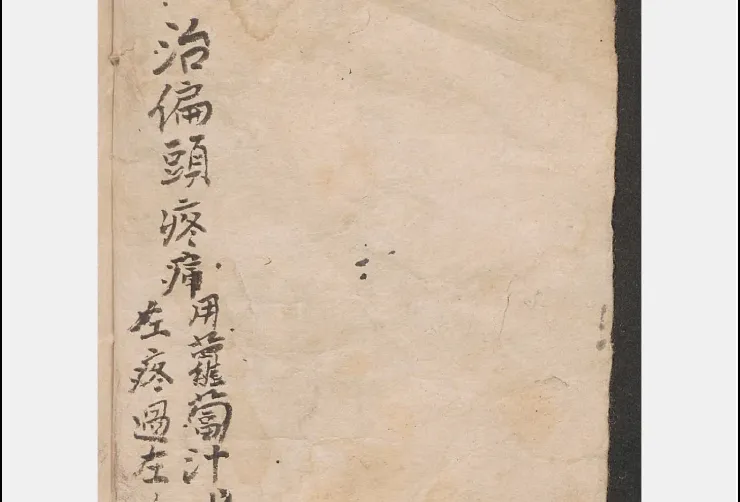 治偏頭疼痛
用蘿蔔汁
左疼過左